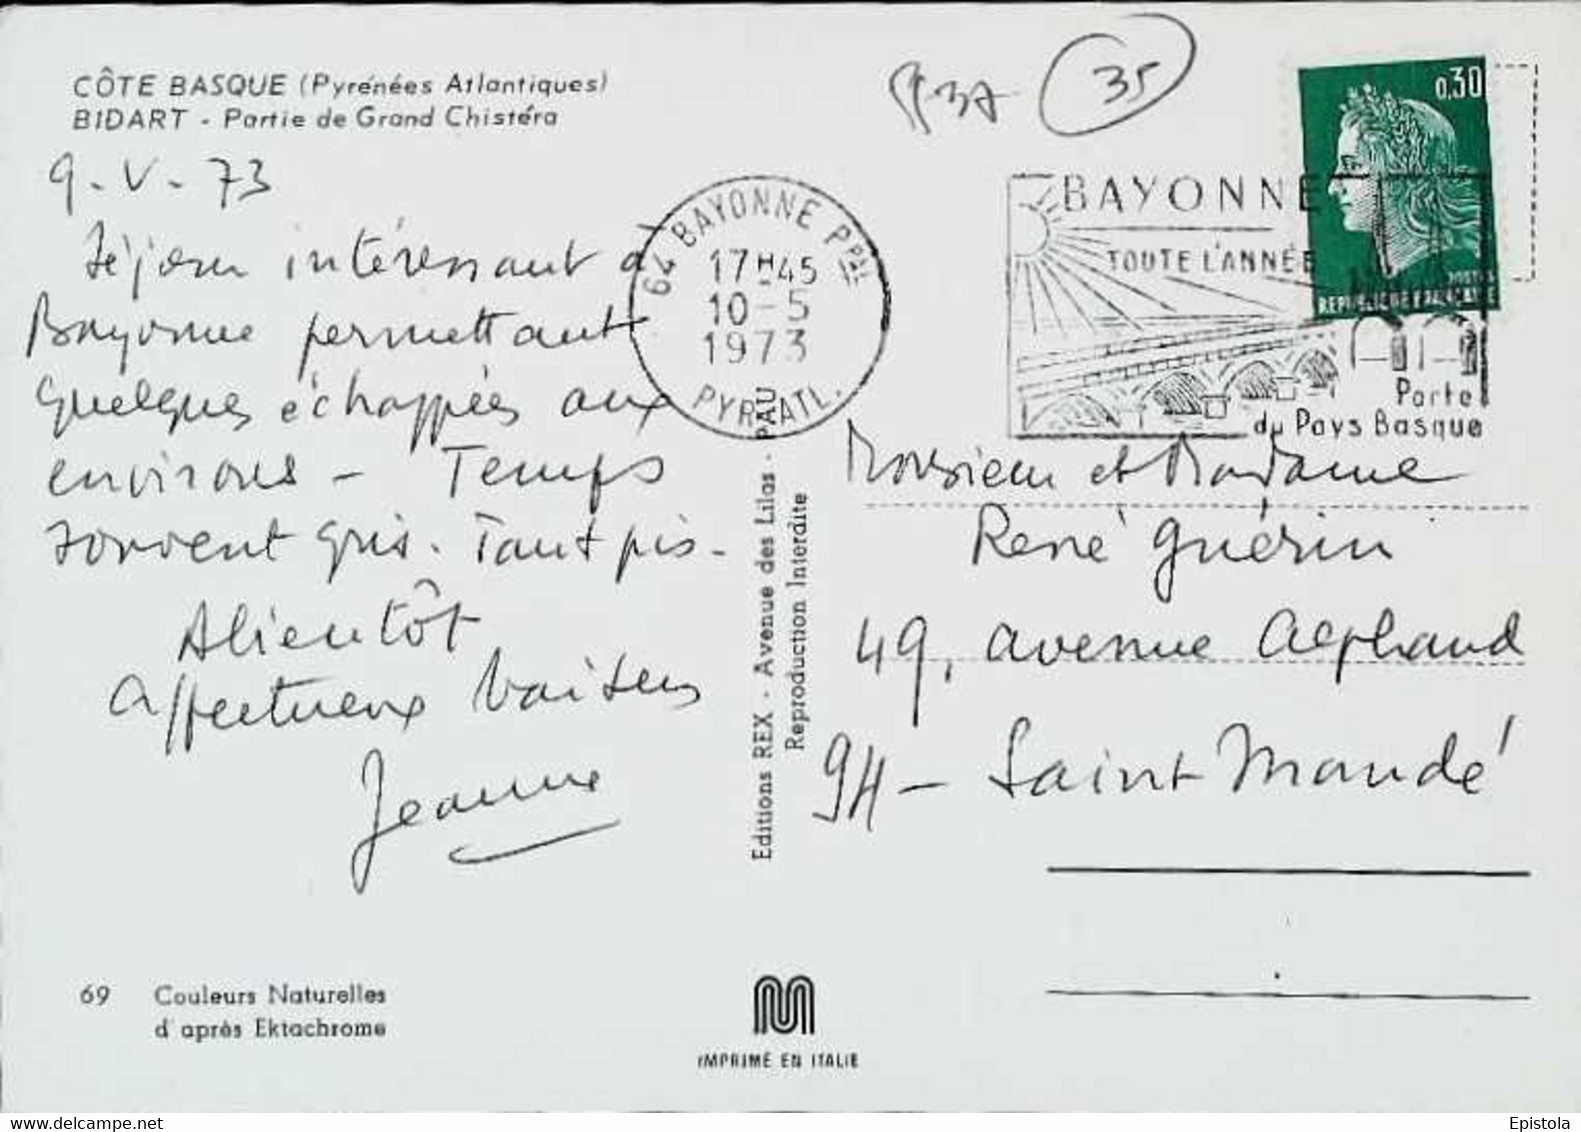 CÔTE BASQUE (Pyrénées Atlantiques)
BIDART - Partie de Grand Chistéra
9-V-73
Séjour intéressant à
Bayonne permettant
quelques échappées aux
environs - Temps
souvent gris. Tant pis -
A bientôt
affectueux baisers
Jeanne
69 Couleurs Naturelles
d'après Ektachrome
Editions REX - Avenue des Lilas - PAU
Reproduction Interdite
IMPRIMÉ EN ITALIE
35
64 BAYONNE Ppal
17H45
10-5
1973
PYR. ATL.
BAYONNE
TOUTE L'ANNÉE
Porte
du Pays Basque
0,30
POSTES
REPUBLIQUE FRANÇAISE
Monsieur et Madame
René Guérin
49, avenue Alphand
94 - Saint Mandé
delcampe.net
Epistola